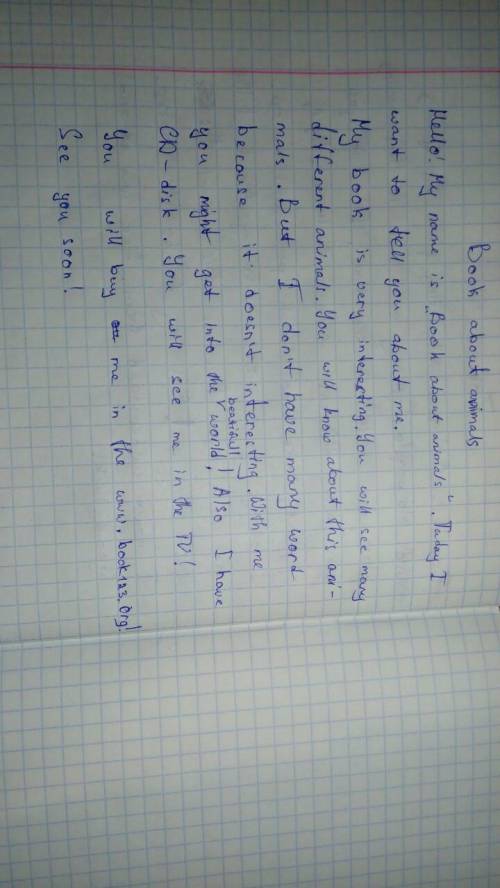 Book about animals
Hello! My name is „Book about animals". Today I
want to tell you about me.
My book is very interesting. You will see many
different animals. You will know about this ani-
mals. But I don't have many word
because it doesn't interesting. With me
you might get into the beatiull world! Also I have
CD-disk. You will see me in the TV!
You will buy me in the www.book123.org!
See you soon!